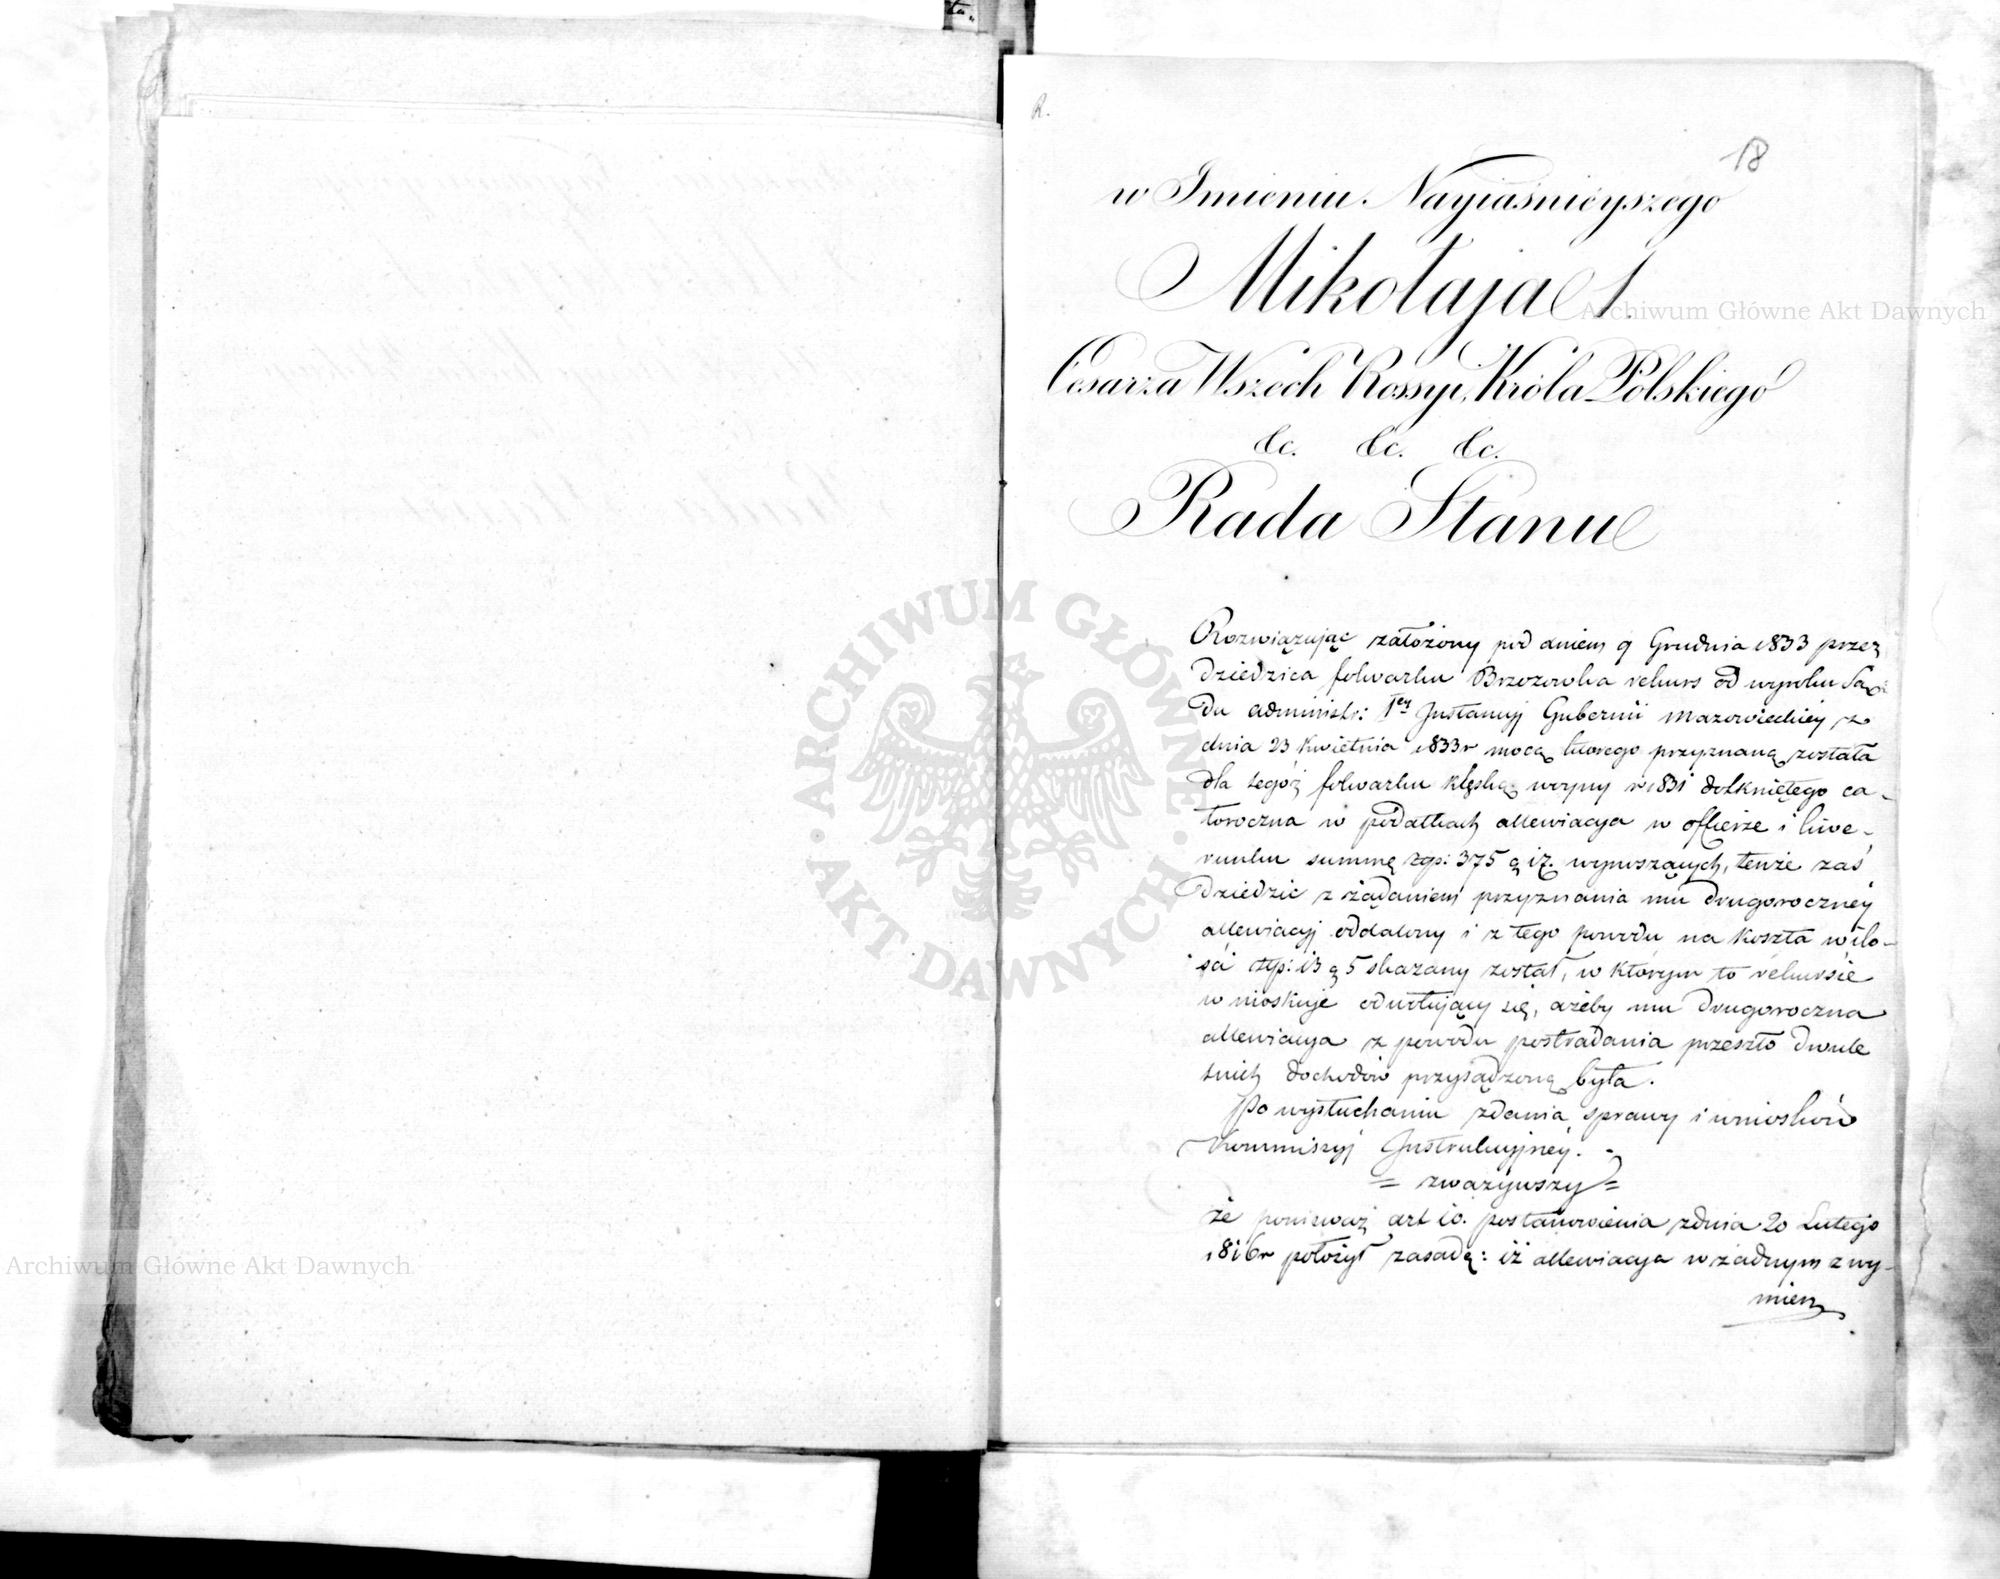 R.
18
w Imieniu Nayiaśnieyszego
Mikołaja I.
Cesarza Wszech Rossyi, Króla Polskiego
&c. &c. &c.
Rada Stanu
Rozwiązując założony pod dniem 9 Grudnia 1833 przez
dziedzica folwarku Brzozowka rekurs od wyroku Są-
du administr: 1ey Instancyj Gubernii Mazowieckiey z
dnia 23 Kwietnia 1833 r mocą którego przyznaną została
dla tegoż folwarku klęską woyny r 1831 dotkniętego ca-
łoroczna w podatkach allewiacya w offierze i liwe-
runku summę zlp: 375 g 17. wynoszących, tenże zaś
Dziedzic z żądaniem przyznania mu drugoroczney
allewiacyj oddalony i z tego powodu na koszta w ilo-
ści zlp: 13 g 5 skazany został, w którym to rekursie
wnioskuje odwołujący się, ażeby mu drugoroczna
allewiacya z powodu postradania przeszło dwule
tnich dochodów przysądzoną była.
Po wysłuchaniu zdania sprawy i wniosków
Kommissyj Instrukcyjney.
= zważywszy =
że ponieważ art 10. postanowienia z dnia 20 Lutego
1816 r położył zasadę: iż allewiacya w żadnym z wy-
mien
Archiwum Główne Akt Dawnych
Archiwum Główne Akt Dawnych
ARCHIWUM GŁÓWNE · AKT DAWNYCH ·